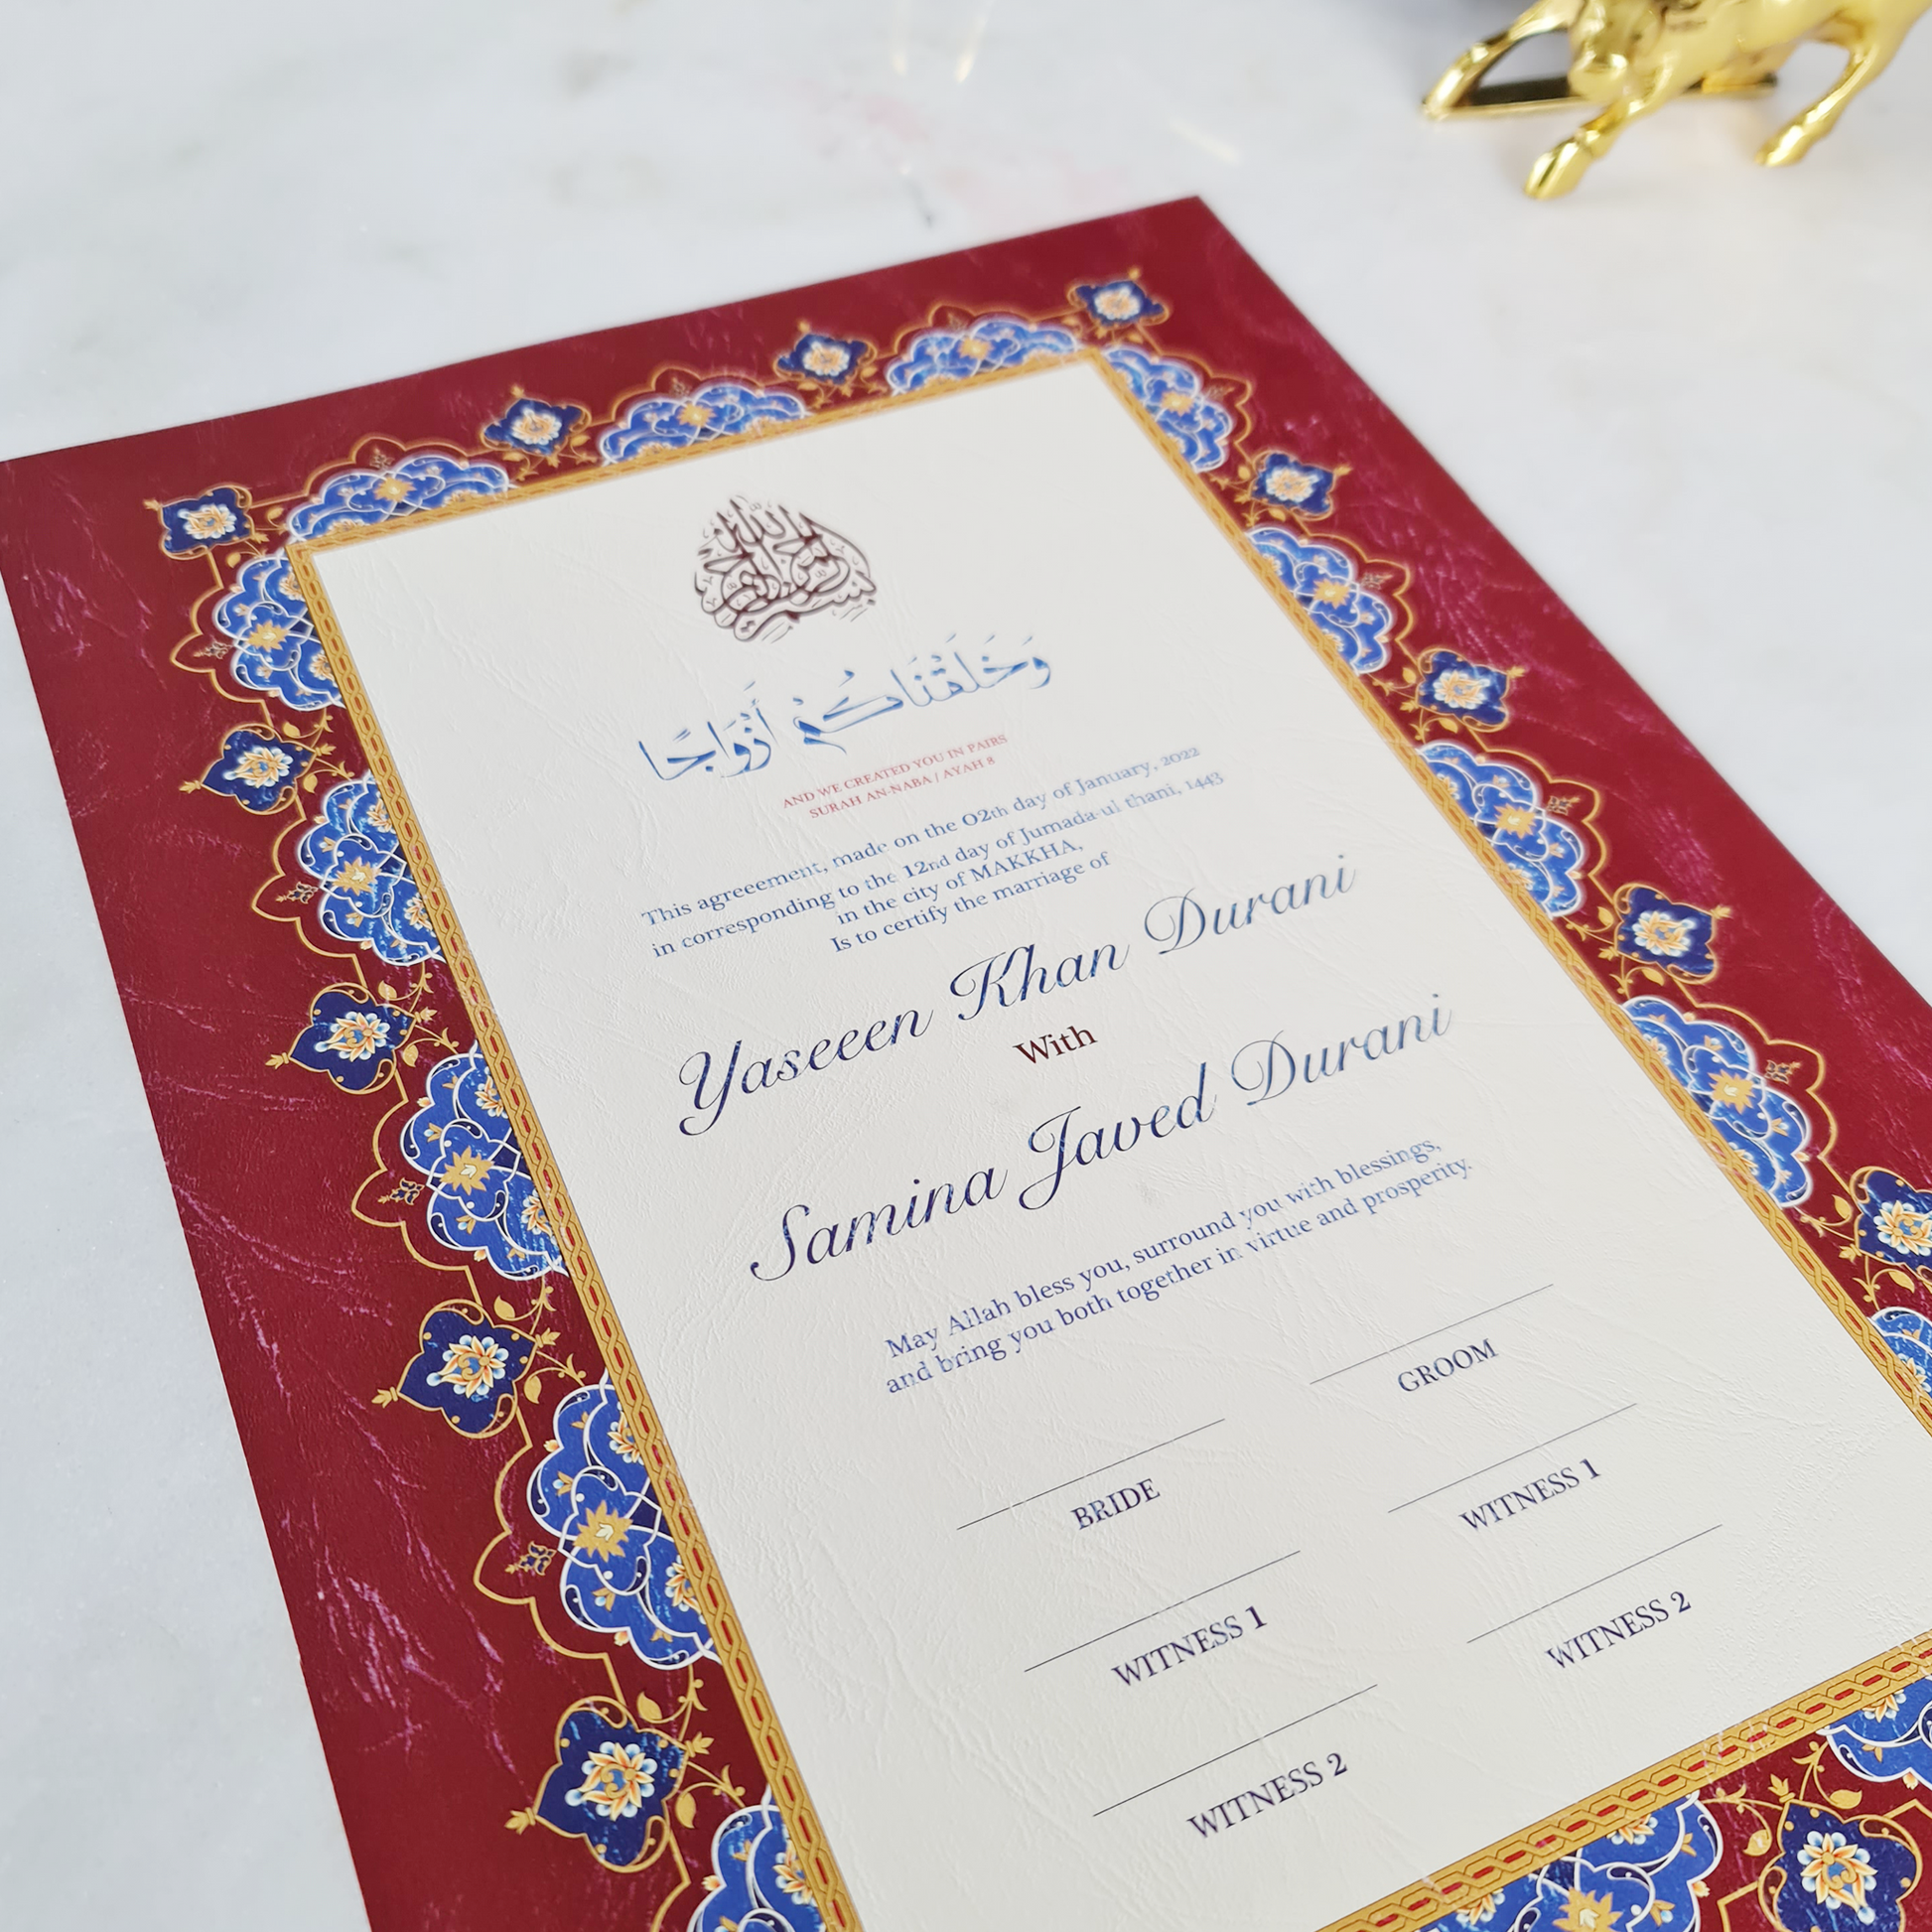 بسم الله الرحمن الرحيم
وَخَلَقْنَاكُمْ أَزْوَاجًا
AND WE CREATED YOU IN PAIRS
SURAH AN-NABA / AYAH 8
This agreeement, made on the 02th day of January, 2022
in corresponding to the 12nd day of Jumada-ul thani, 1443
in the city of MAKKHA,
Is to certify the marriage of
Yaseeen Khan Durani
With
Samina Javed Durani
May Allah bless you, surround you with blessings,
and bring you both together in virtue and prosperity.
GROOM
BRIDE
WITNESS 1
WITNESS 1
WITNESS 2
WITNESS 2